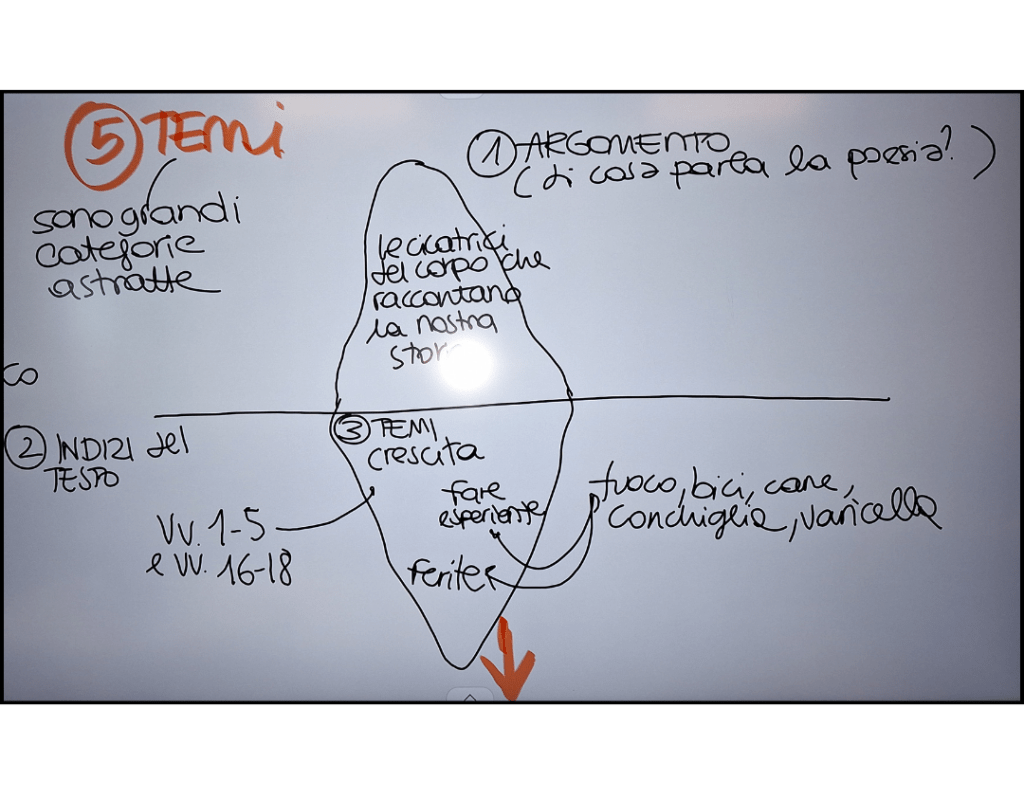 5 TEMI
sono grandi
categorie
astratte
1 ARGOMENTO
(di cosa parla la poesia?)
le cicatrici
del corpo che
raccontano
la nostra
co
2 INDIZI del
TESTO
vv. 1-5
e vv. 16-18
3 TEMI
crescita
fare
esperienze
ferite
fuoco, bici, cane,
conchiglia, varicella